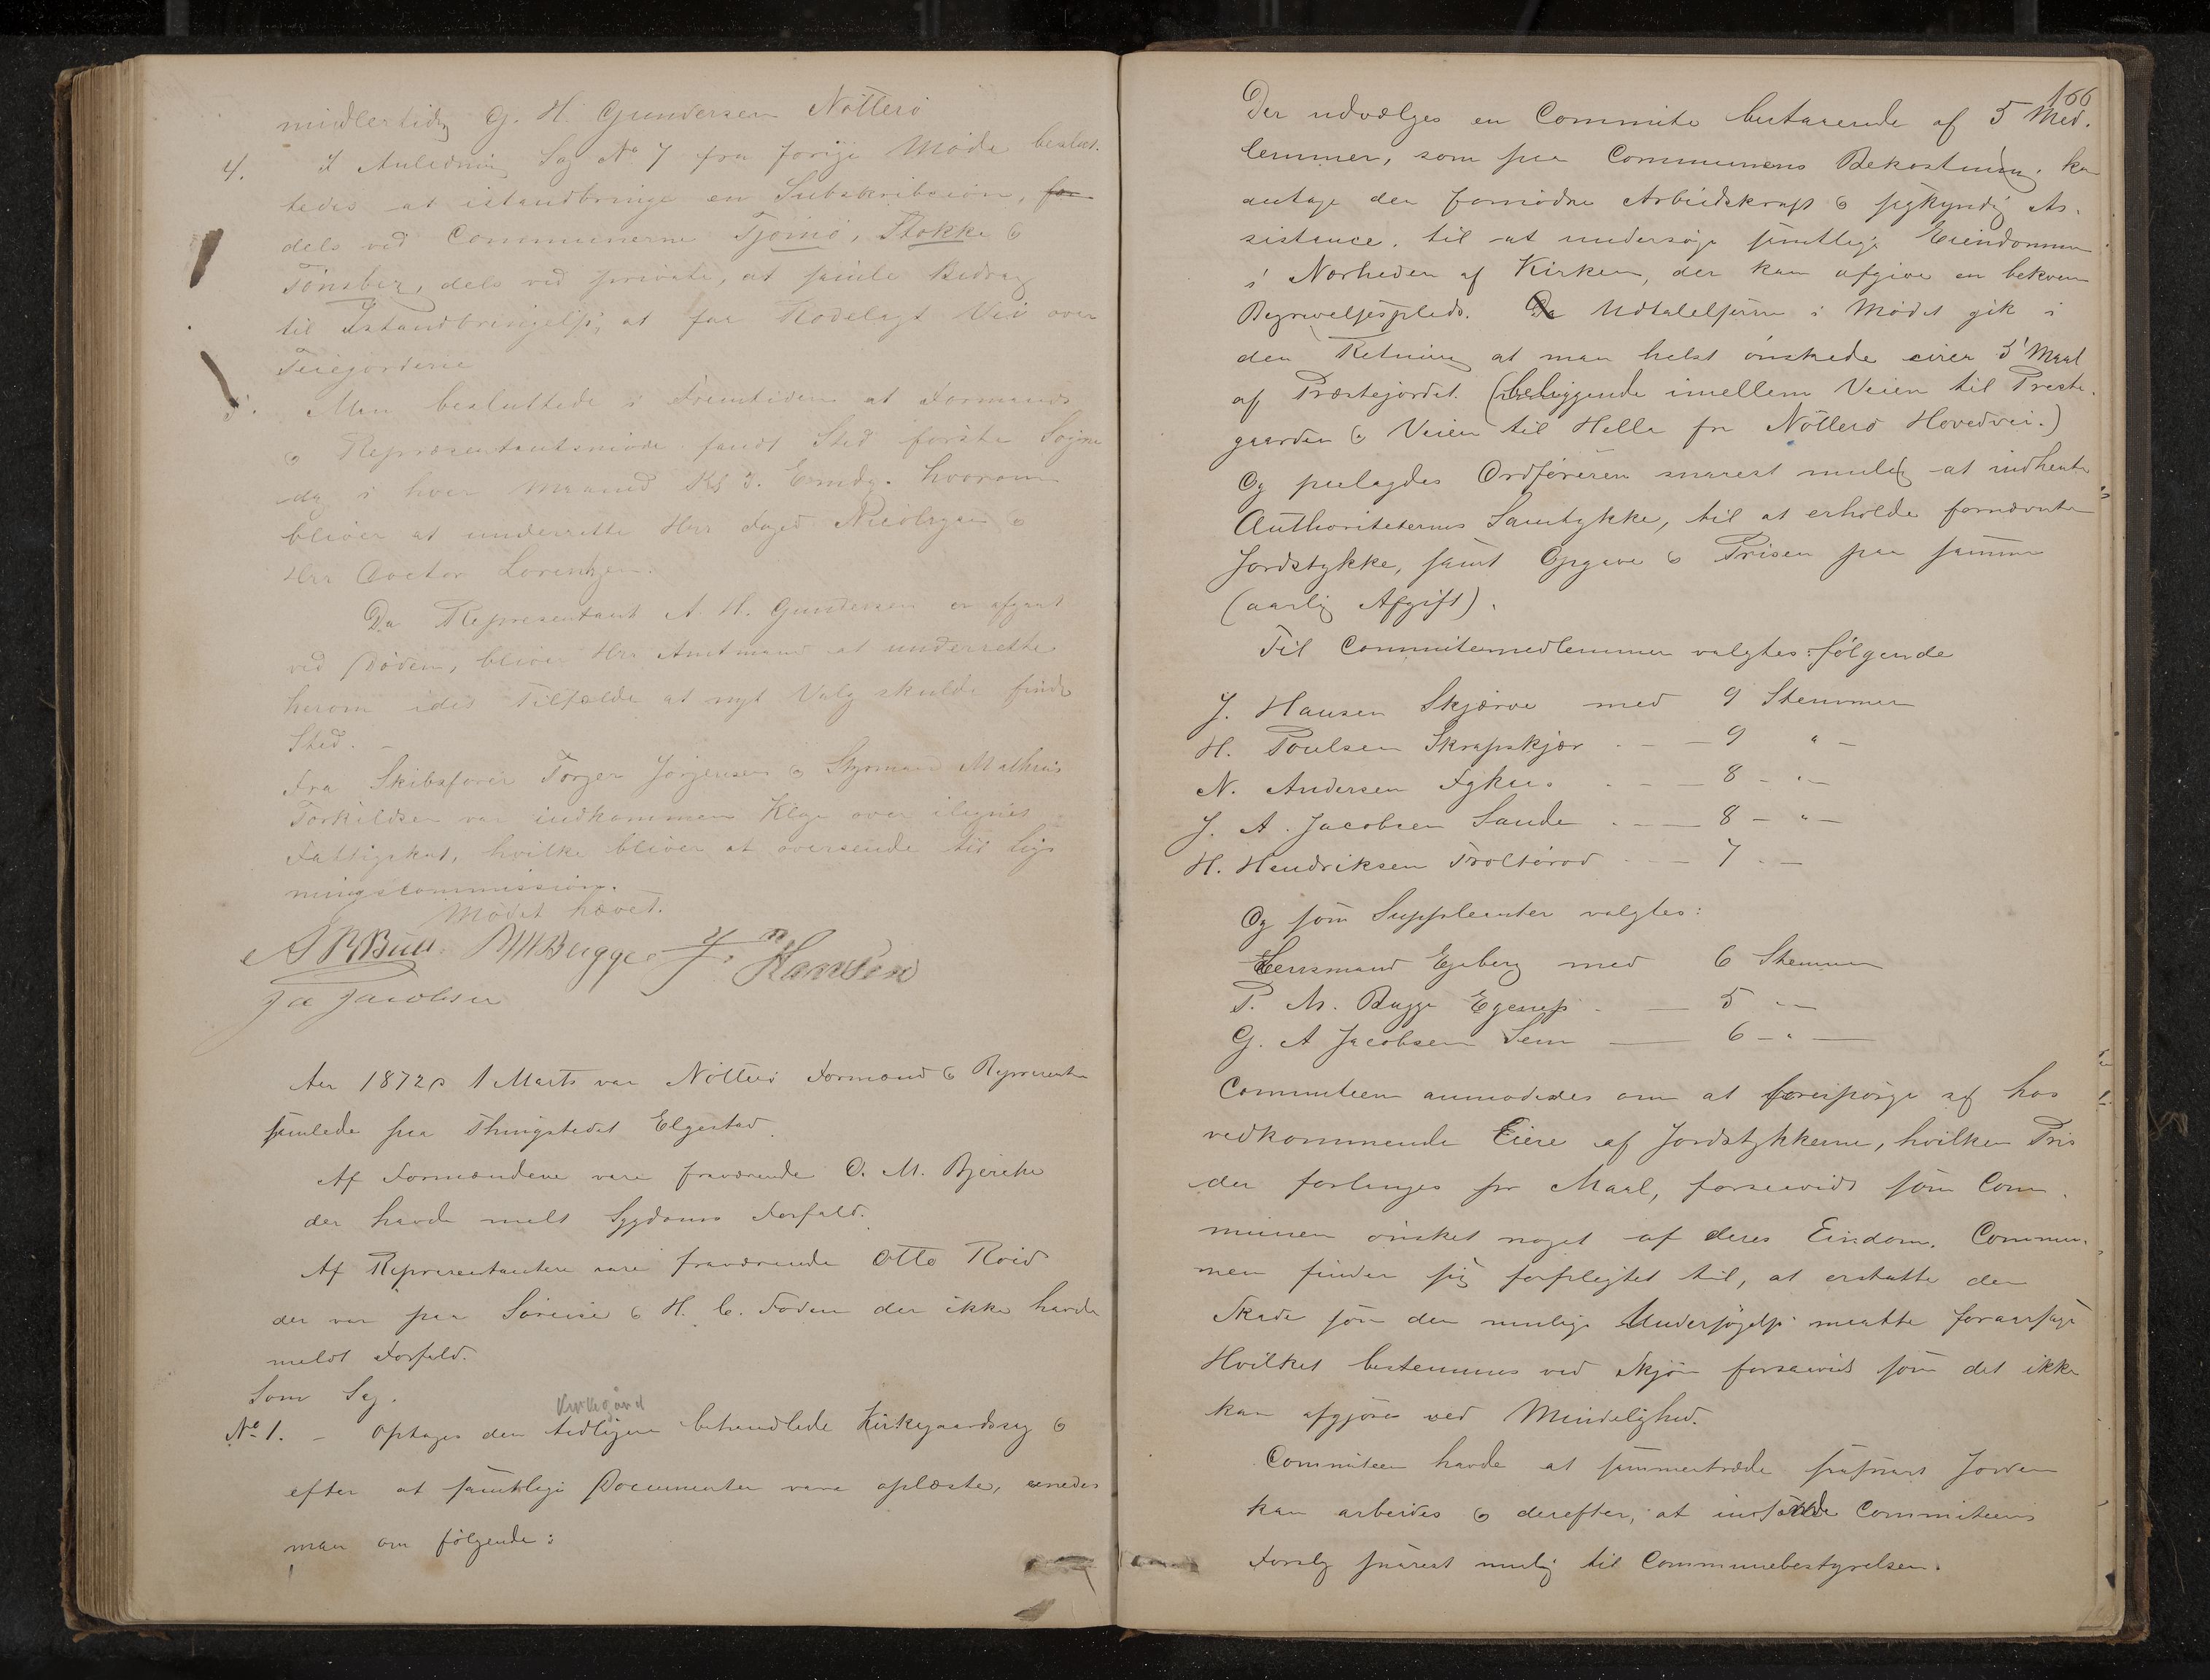 midlertidig G. H. Gundersen Nötterö
4. I Anledning Sag No 7 fra forrige Möde beslut-
tedes at istandbringe en Subskribsion, for
dels ved Communerne Tjömö, Stokke &
Tönsberg, dels ved private, at samle Bidrag
til Istandbringelse at faa Rodelagt Vei over
Teiegjordene
5. Man besluttede i Fremtiden at Formands
& Repræsentantsmöde fandt Sted förste Sögne
dag i hver Maaned Kl 3. Emdg. hvorom
bliver at underrette Hrr Foged Nicolaysen &
Hrr Doctor Lorentzen.
Da Repræsentant A. H. Gundersen er afgaaet
ved Döden, bliver Hrr Amtmand at underrette
herom i det Tilfælde at nyt Valg skulde finde
Sted. –
Fra Skibsförer Torger Jörgensen & Styrmand Mathias
Torkildsen var indkommen Klage over ilignet
Fattigskat, hvilke bliver at oversende til Lig-
ningscommission.
Mödet hævet.
A R Bull. P M Bugge J. Hansen
J A Jacobsen
Aar 1872 d 1 Marts var Nötterö Formænd & Repræsentan
samlede paa Thingstedet Elgestad.
Af Formændene vare fraværende O. M. Bjerke
der havde meldt Sygdoms Forfald.
Af Repræsentantere vare fraværende Otto Roed
der var paa Söreise & H. C. Foden der ikke havde
meldt Forfald.
Som Sag.
Kirkegård
No 1. – Optages den tidligere behandlede Kirkegaardssag &
efter at samtlige Documenter vare oplæste, enedes
man om fölgende:
166
Der udvælges en Commite bestaaende af 5 Med-
lemmer, som paa Communens Bekostning kan
antage den fornödne Arbeidskraft & sagkyndig As-
sistance, til at undersöge samtlige Eiendomme
i Nærheden af Kirken, der kan afgive en bekvem
Begravelsesplads. Da Udtalelserne i Mödet gik i
den Retning at man helst önskede circa 5 Maal
af Præstejordet (beliggende imellem Veien til Preste-
gaarden & Veien til Hella fra Nötterö Hovedvei.)
Og paalagdes Ordföreren snarest mulig at indhente
Authoriteternes Samtykke, til at erholde fornævnte
Jordstykke, samt Opgave & Prisen paa samme
(aarlig Afgift).
Til Commitemedlemmer valgtes fölgende
J. Hansen Skjærve med 9 Stemmer
H. Poulsen Skrapskjær - – 9 " –
N. Andersen - – 8 – " –
J. A. Jacobsen Sande - – 8 – " –
H. Hendriksen - – 7 - –
Og som Suppleanter valgtes:
Lensmand Egeberg med 6 Stemmer
P. M. Bugge Egenæs - – 5 " –
G. A Jacobsen Sem – 6 – " –
Commiteen anmodedes om at forespörge sig hos
vedkommende Eiere af Jordstykkerne, hvilken Pris
der forlanges pr Maal, forsaavidt som Com-
munen önsket noget af deres Eiendom. Commu-
nen finder sig forpligtet til, at erstatte den
Skade som den mulige Undersögelse maatte foraarsage
Hvilket bestemmes ved Skjön forsaavidt som det ikke
kan afgjöres ved Mindelighed.
Commiteen havde at sammentræde saasnart Jorden
kan arbeides & derefter, at indsende Commiteens
Forslag snarest mulig til Communebestyrelsen.